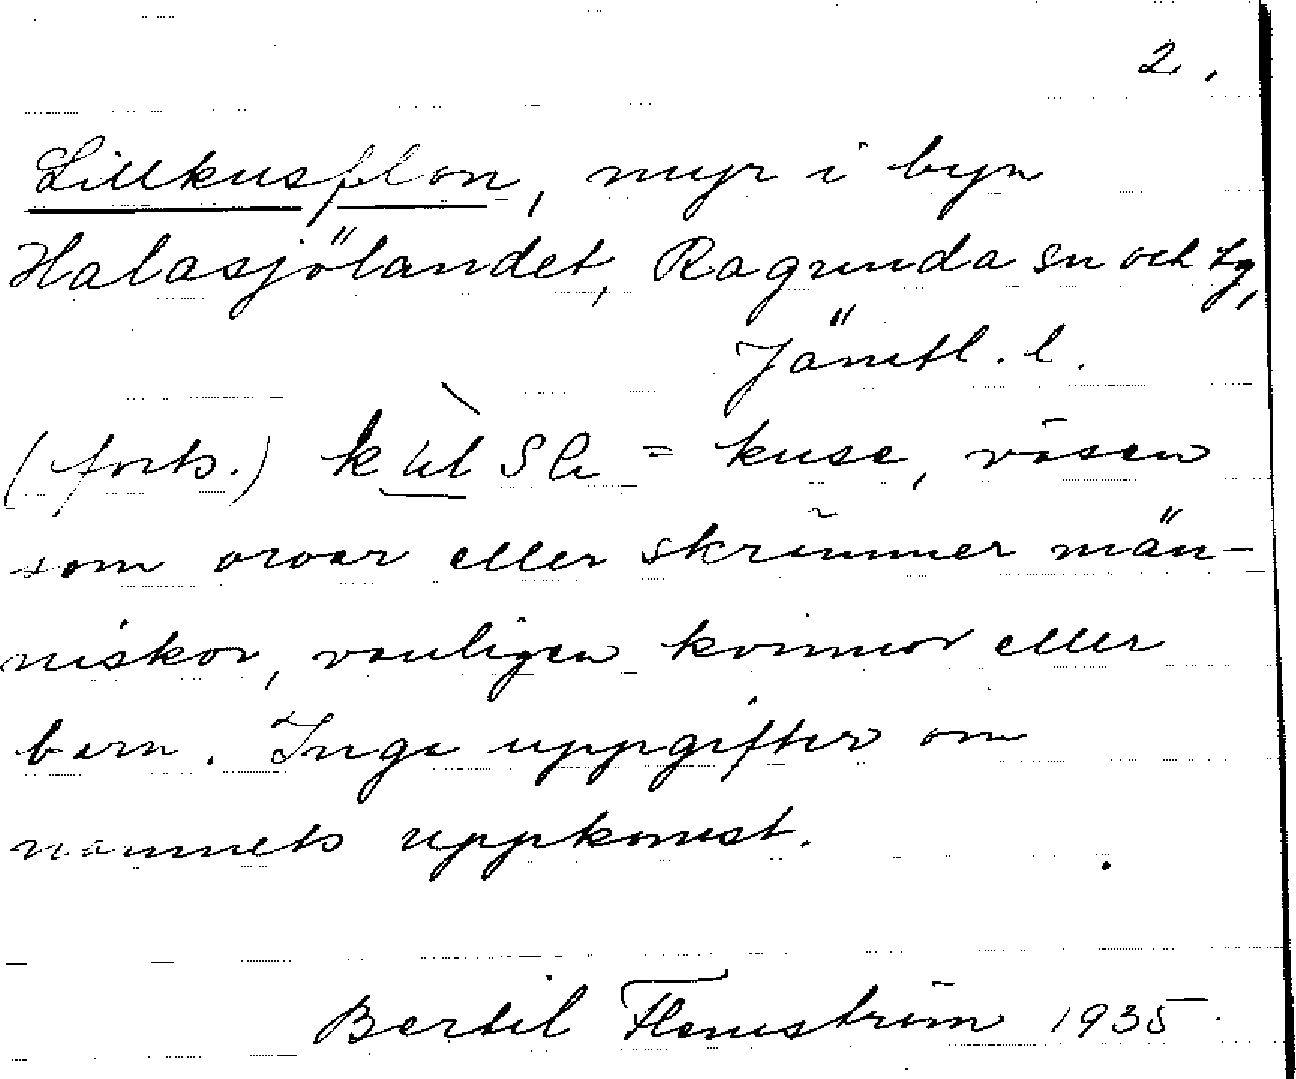 2.
Lillkusflon, myr i byn
Halasjölandet, Ragunda sn och tg,
Jämtl. l.
(forts.) = kuse, väsen
som oroar eller skrämmer män-
niskor, vanligen kvinnor eller
barn. Inga uppgifter om
namnets uppkomst.
Bertil Flemström 1935